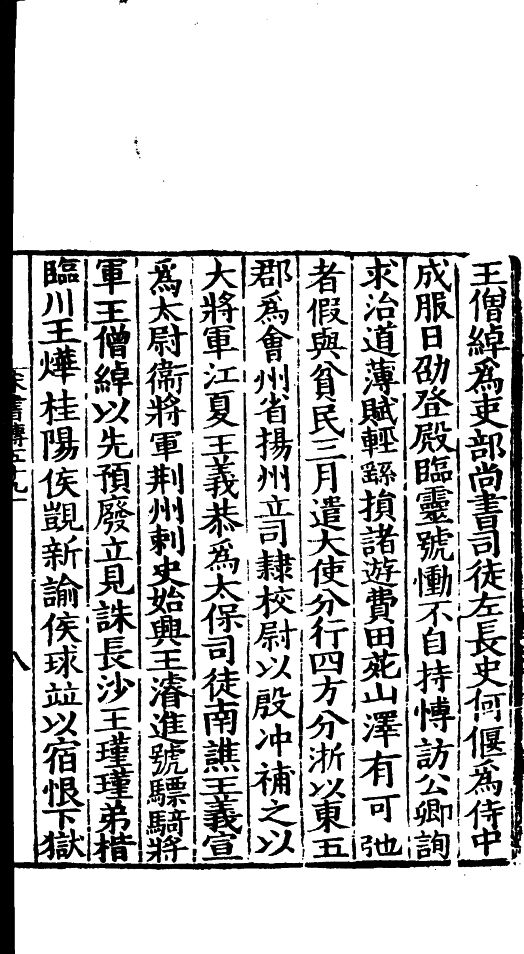 王僧綽為吏部尚書司徒左長史何偃為侍中
成服日劭登殿臨靈號慟不自持愽訪公卿詢
求治道薄賦輕繇損諸遊費田苑山澤有可弛
者假與貧民三月遣大使分行四方分浙以東五
郡為會州省揚州立司隸校尉以殷冲補之以
大將軍江夏王義恭為太保司徒南譙王義宣
為太尉衞將軍荆州刺史始興王濬進號驃騎將
軍王僧綽以先預廢立見誅長沙王瑾瑾弟楷
臨川王燁桂陽侯覬新諭侯球竝以宿恨下獄
宋書傳五十九
八